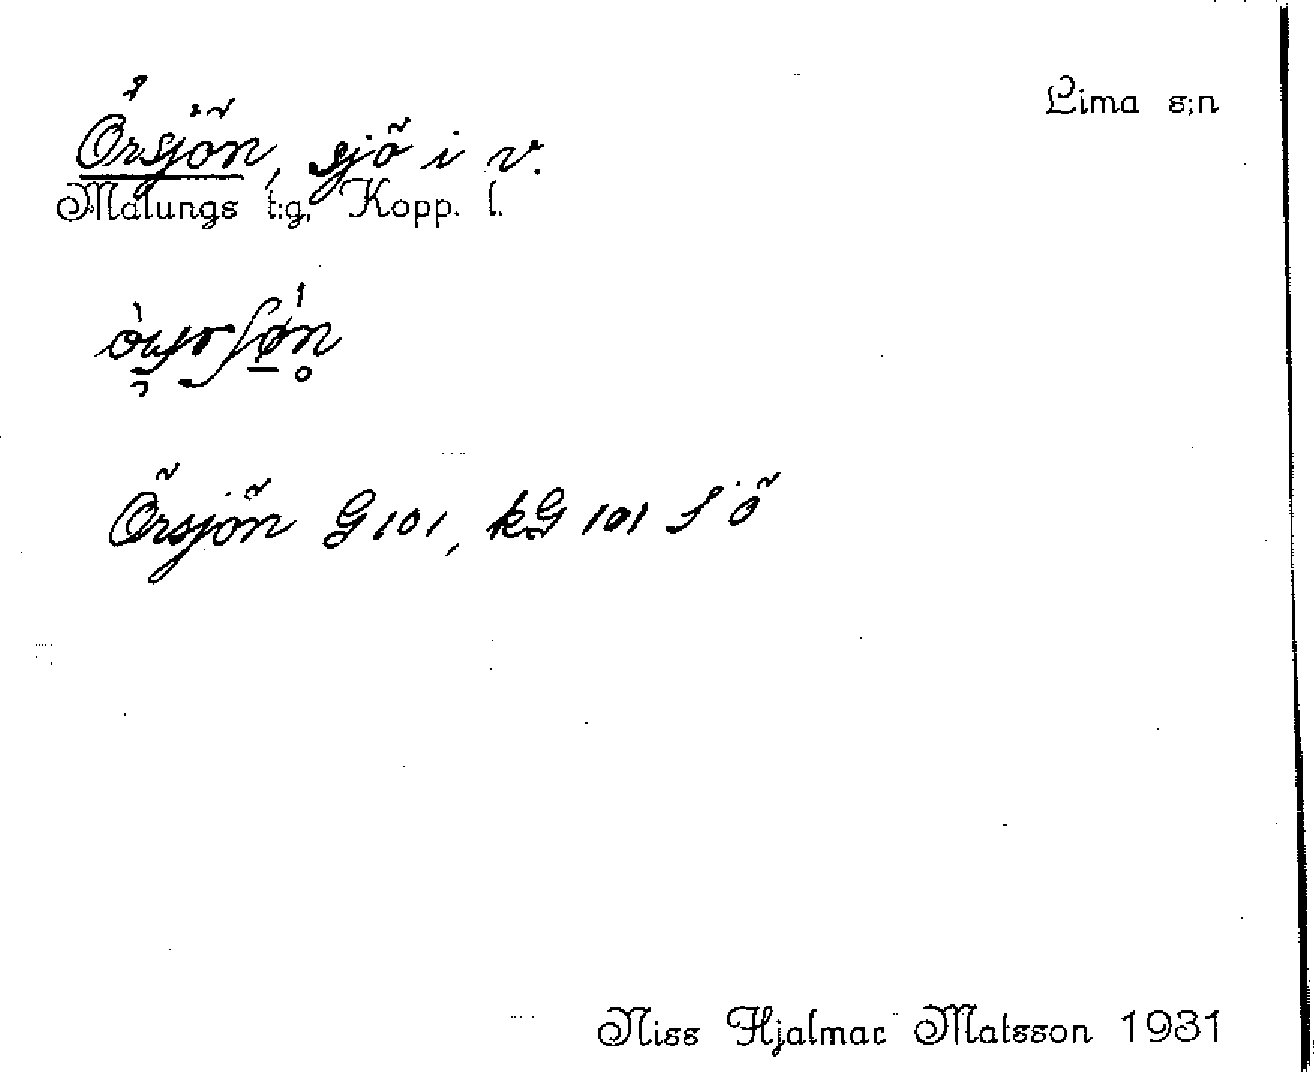 Lima s;n
Örsjön, sjö i v.
Malungs t:g, Kopp. l.
Örsjön G 101, kG 101 S ö
Niss Hjalmar Matsson 1931